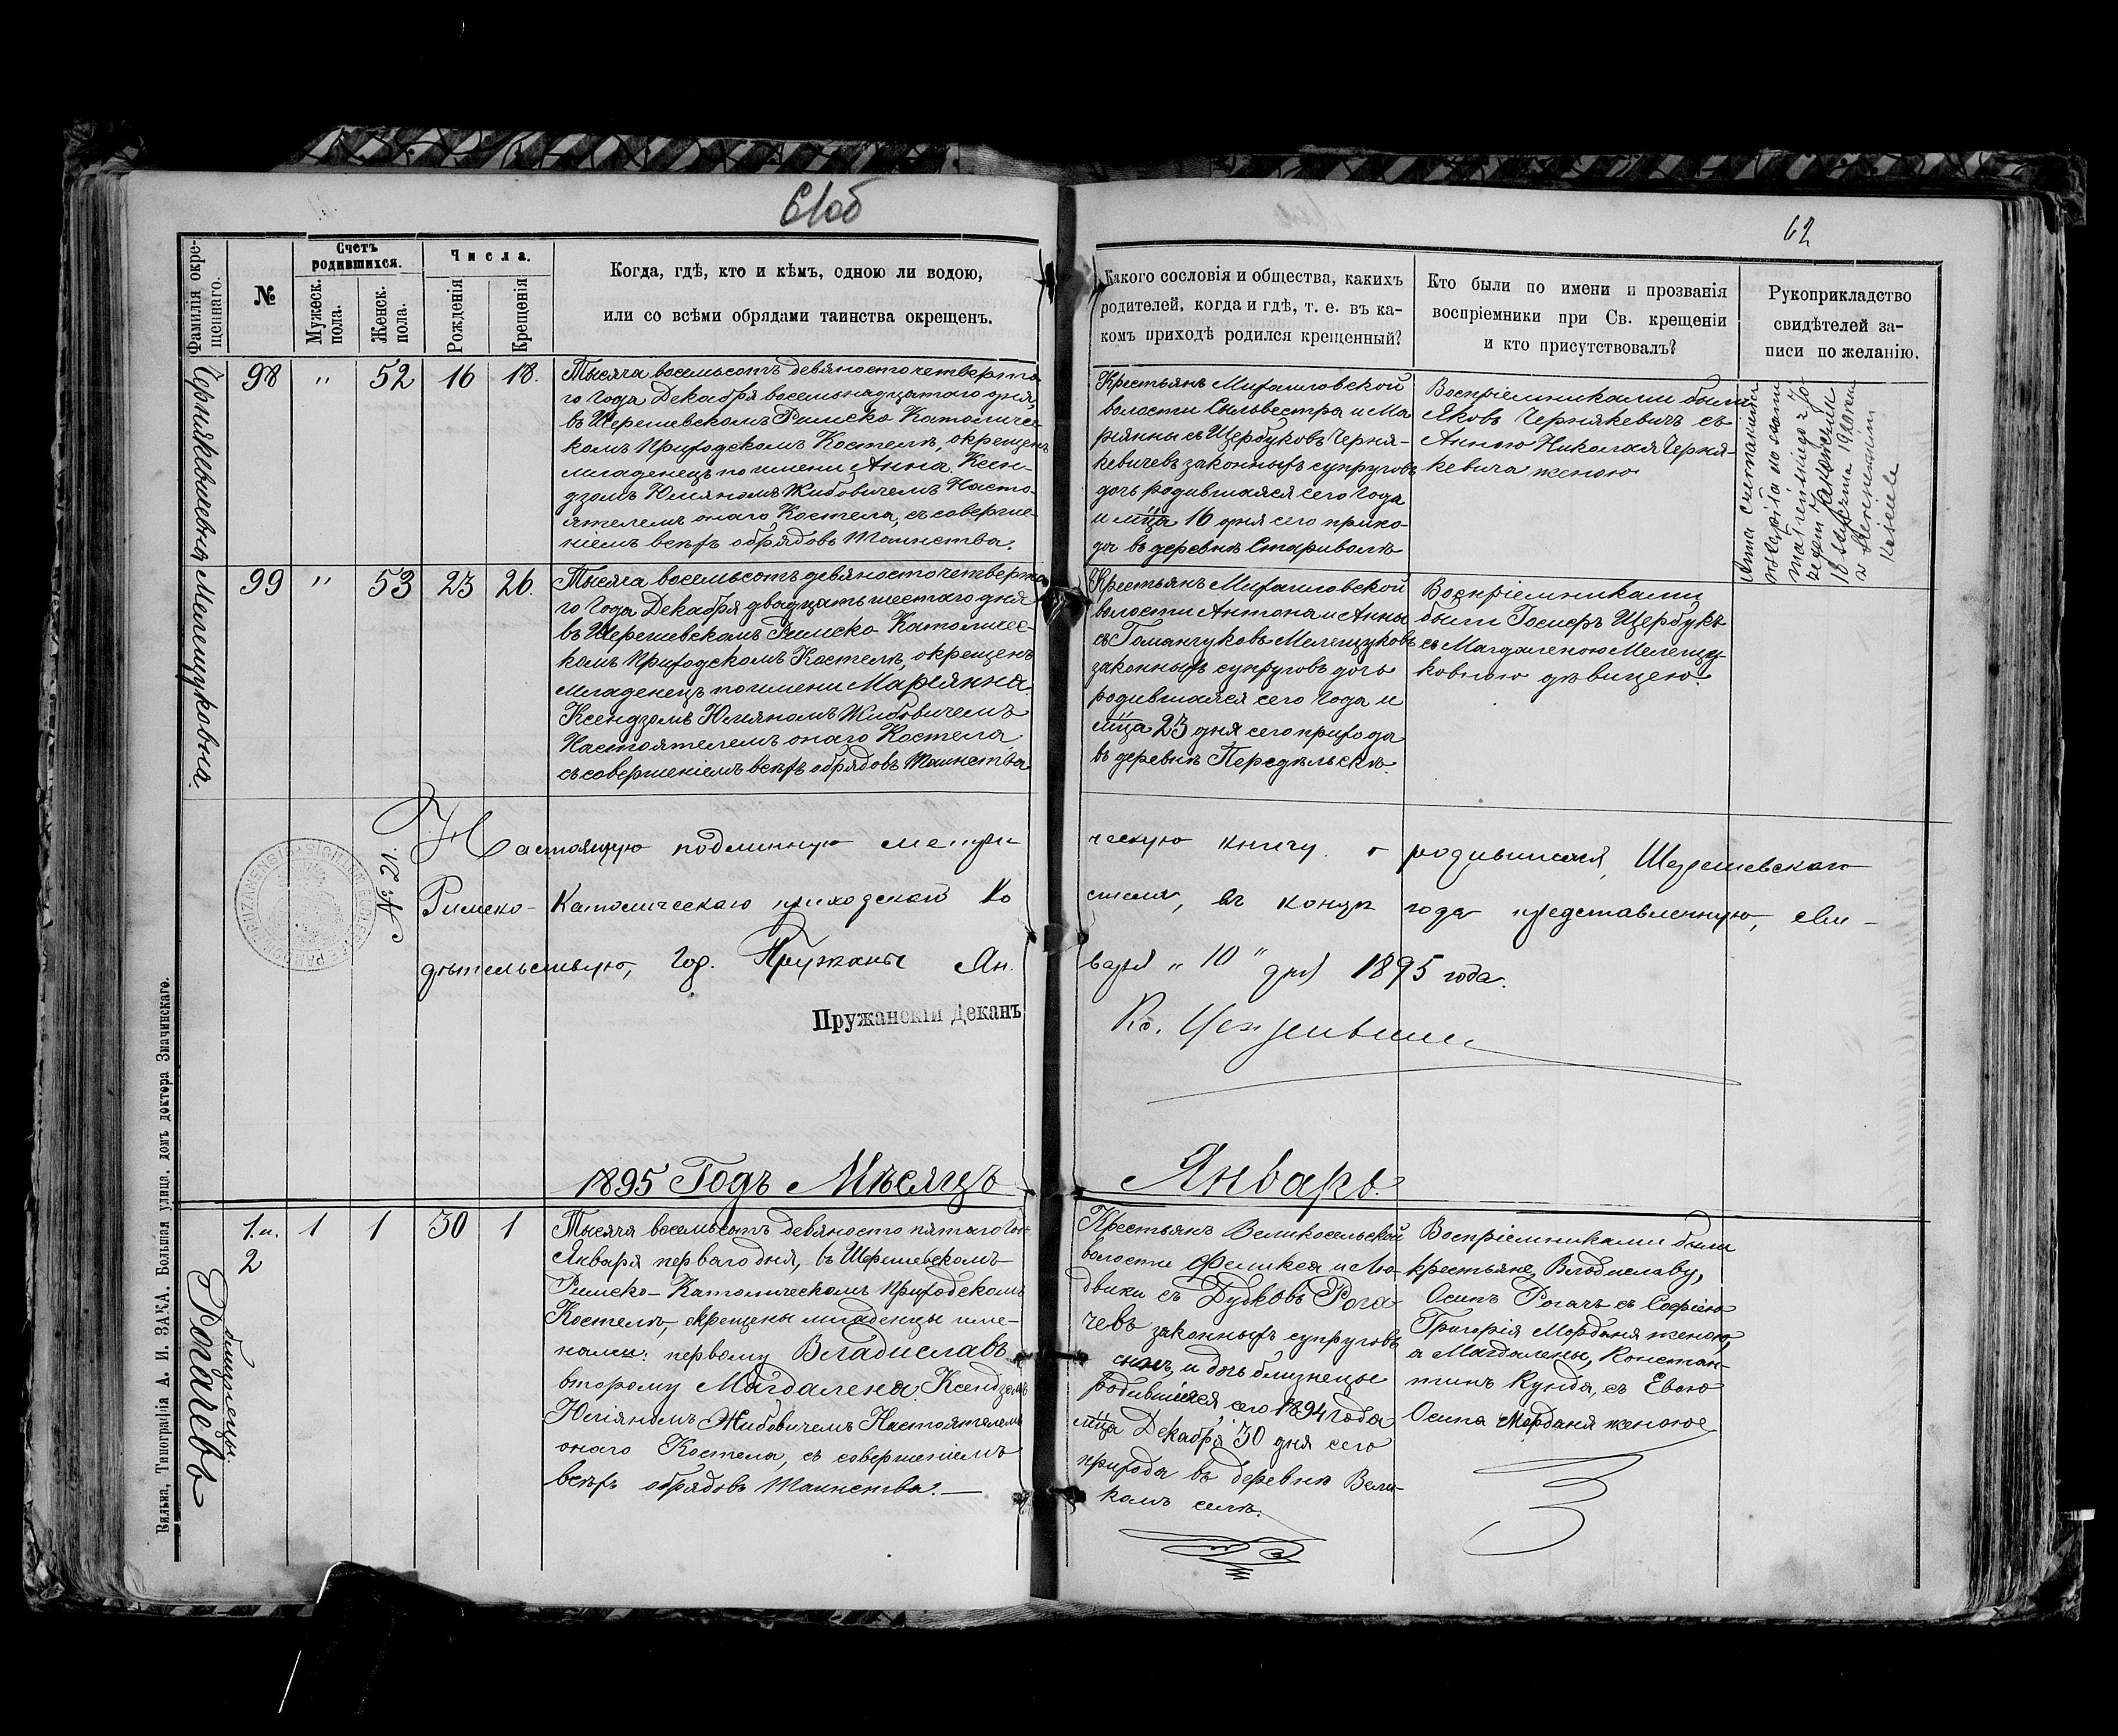 61об
62
Фамилія окре-
щеннаго.
№
Счетъ
родившихся.
Мужеск.
пола.
Женск.
пола.
Числа.
Рожденія
Крещенія
Когда, гдѣ, кто и кѣмъ, одною ли водою,
или со всѣми обрядами таинства окрещенъ.
Какого сословія и общества, какихъ
родителей, когда и гдѣ, т. е. въ ка-
комъ приходѣ родился крещенный?
Кто были по имени и прозванія
воспріемники при Св. крещеніи
и кто присутствовалъ?
Рукоприкладство
свидѣтелей за-
писи по желанію.
Чернякевичевна
98 " 52 16 18.
Тысяча восемьсотъ девяносто четверта-
го Года Декабря восемнадцатаго дня,
въ Шерешевскомъ Римско Католичес-
комъ Приходскомъ Костелѣ, окрещенъ
младенецъ по имени Анна, Ксен-
дзомъ Юліяномъ Жибовичемъ Насто-
ятелемъ онаго Костела, съ соверше-
ніемъ всѣхъ обрядовъ Таинства.
Крестьянъ Михайловской
волости Сильвестра и Ма
ріянны съ Щербуковъ Черня-
кевичевъ законныхъ супруговъ
дочь родившаяся сего Года
и мѣца 16 дня сего прихо-
да въ деревнѣ Стариволѣ
Воспріемниками были
Яковъ Чернякевичъ съ
Анною Николая Черня-
кевича женою
Anna
18
1920
w
Kościele
Мелещуковна.
99 " 53 23 26.
Тысяча восемьсотъ девяносто четверта-
го Года Декабря двадцать шестаго дня
въ Шерешевскомъ Римско Католичес-
комъ Приходскомъ Костелѣ, окрещенъ
младенецъ по имени Маріянна
Ксендзомъ Юліяномъ Жибовичемъ
Настоятелемъ онаго Костела,
съ совершеніемъ всѣхъ обрядовъ Таинства
Крестьянъ Михайловской
волости Антона и Анны
съ Романчуковъ Мелещуковъ
законныхъ супруговъ дочь
родившаяся сего Года и
мѣца 23 дня сего прихода
въ деревнѣ Передѣльскѣ.
Воспріемниками
были Госифъ Щербукъ
съ Магдаленою Мелещу-
ковною дѣвицею.
Настоящую подлинную метри-
ческую книгу о родившихся, Шерешевскаго
Римско-Католическаго приходскаго Ко
стела, въ концѣ года представленную, сви-
дѣтельствую, Гор. Пружаны Ян-
варя „10" дня 1895 года.
Пружанскій Деканъ
Кс.
1895 Годъ Мѣсяцъ
Январь.
Рогачевъ
близнецы.
1.и. 1 1 30 1
2
Тысяча восемьсотъ девяносто пятаго Года
Января перваго дня, въ Шерешевскомъ
Римско-Католическомъ Приходскомъ
Костелѣ, окрещены младенцы име-
нами: первому Владиславъ
второму Магдалена, Ксендзомъ
Юліяномъ Жибовичемъ Настоятелемъ
онаго Костела, съ совершеніемъ
всѣхъ обрядовъ Таинства.—
Крестьянъ Великосельской
волости Феликса и Лю-
двики съ Дудковъ Рога-
чевъ законныхъ супруговъ
сынъ, и дочь близнецы
родившіяся, сего 1894 года
мѣца Декабря 30 дня сего
прихода въ деревнѣ Вели-
комъ селѣ.
Воспріемниками были
крестьяне, Владиславу,
Осипъ Рогачъ съ Софіею
Григорія Морданя женою,
а Магдалены, Констан-
тинъ Кунда, съ Евою
Осипа Морданя женою
Вильна, Типографія А. И. ЗАКА. Большая улица. домъ доктора Значинскаго.